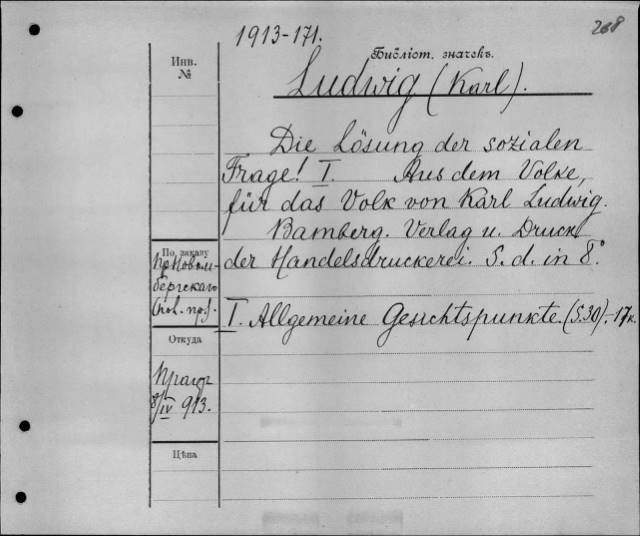 1913-171.
268
Инв.
№
Библіот. значекъ.
Ludwig (Karl).
Die Lösung der sozialen
Frage! I. Aus dem Volke,
für das Volk von Karl Ludwig.
Bamberg. Verlag u. Druck
der Handelsdruckerei. S. d. in 8°
I. Allgemeine Gesichtspunkte. (S.30).-17к.
По заказу
пр. Новом-
бергскаго
Откуда
8/IV 913.
Цѣна